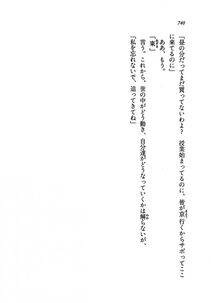 740
「昼の分だってまだ買ってないわよ? 授業始まってるのに、彼が京行くからサボってここ
に来てるのに」
ああ、もう。
「東」
言う。これから、世の中がどう動き、自分達がどうなっていくかは解らないが、
「私を忘れないで、追ってきてね」